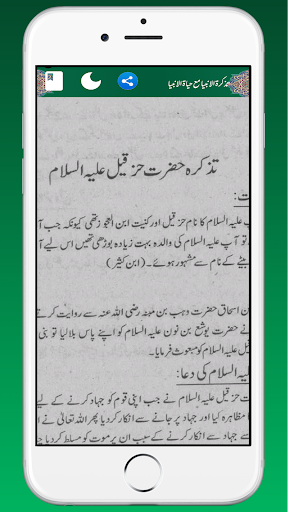 تذکرۃ الانبیا مع حیاۃ الانبیا
تذکرہ حضرت حزقیل علیہ السلام
ت:
علیہ السلام کا نام حزقیل اور کنیت ابن العجوز تھی کیونکہ جب آپ
تو آپ علیہ السلام کی والدہ بہت زیادہ بوڑھی تھیں اس لیے آپ
بیٹے کے نام سے مشہور ہوئے۔ (ابن کثیر)
ن اسحاق حضرت وہب بن منبہ رضی اللہ عنہ سے روایت کرتے
حضرت یوشع بن نون علیہ السلام کو اپنے پاس بلا لیا تو بنی
قیل علیہ السلام کو مبعوث فرمایا۔
یہ السلام کی دعا:
ت حزقیل علیہ السلام نے جب اپنی قوم کو جہاد کرنے کے لیے
مظاہرہ کیا اور جہاد پر جانے سے انکار کر دیا پھر اللہ تعالیٰ نے ا
سے جہاد سے انکار کرنے کے سبب ان پر موت کو مسلط کر دیا